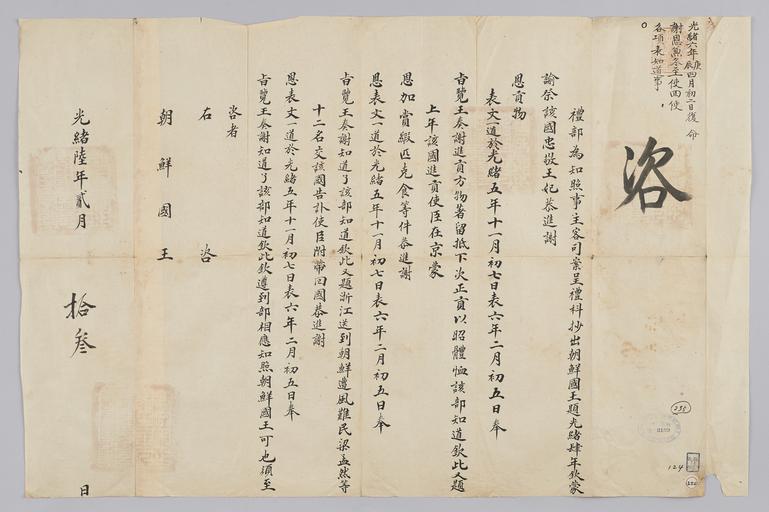 光緒六年庚辰四月初二日復 命
謝恩兼冬至使回使
各項表知道事
咨
禮部為知照事主客司案呈禮科抄出朝鮮國王題光緒肆年欽蒙
諭祭該國忠敬王妃恭進謝
恩貢物
表文一道於光緒五年十一月初七日表六年二月初五日奉
旨覽王奏謝進貢方物著留抵下次正貢以昭體恤該部知道欽此又題
上年該國進貢使臣在京蒙
恩加賞緞匹克食等件恭進謝
恩表文一道於光緒五年十一月初七日表六年二月初五日奉
旨覽王奏謝知道了該部知道欽此又題浙江送到朝鮮遭風難民梁孟然等
十二名交該國告訃使臣附帶回國恭進謝
恩表文一道於光緒五年十一月初七日表六年二月初五日奉
旨覽王奏謝知道了該部知道欽此欽遵到部相應知照朝鮮國王可也須至
咨者
右 咨
朝鮮國王
光緒陸年貳月 拾叁 日
235
124